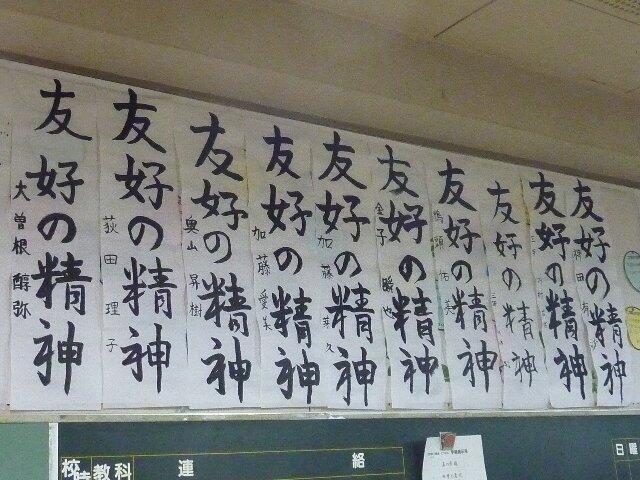 友好の精神
大曽根醇弥
友好の精神
荻田理子
友好の精神
奥山昇樹
友好の精神
加藤愛美
友好の精神
加藤芽久
友好の精神
金子勝也
友好の精神
友好の精神
友好の精神
友好の精神
校時
教科
連絡
日曜